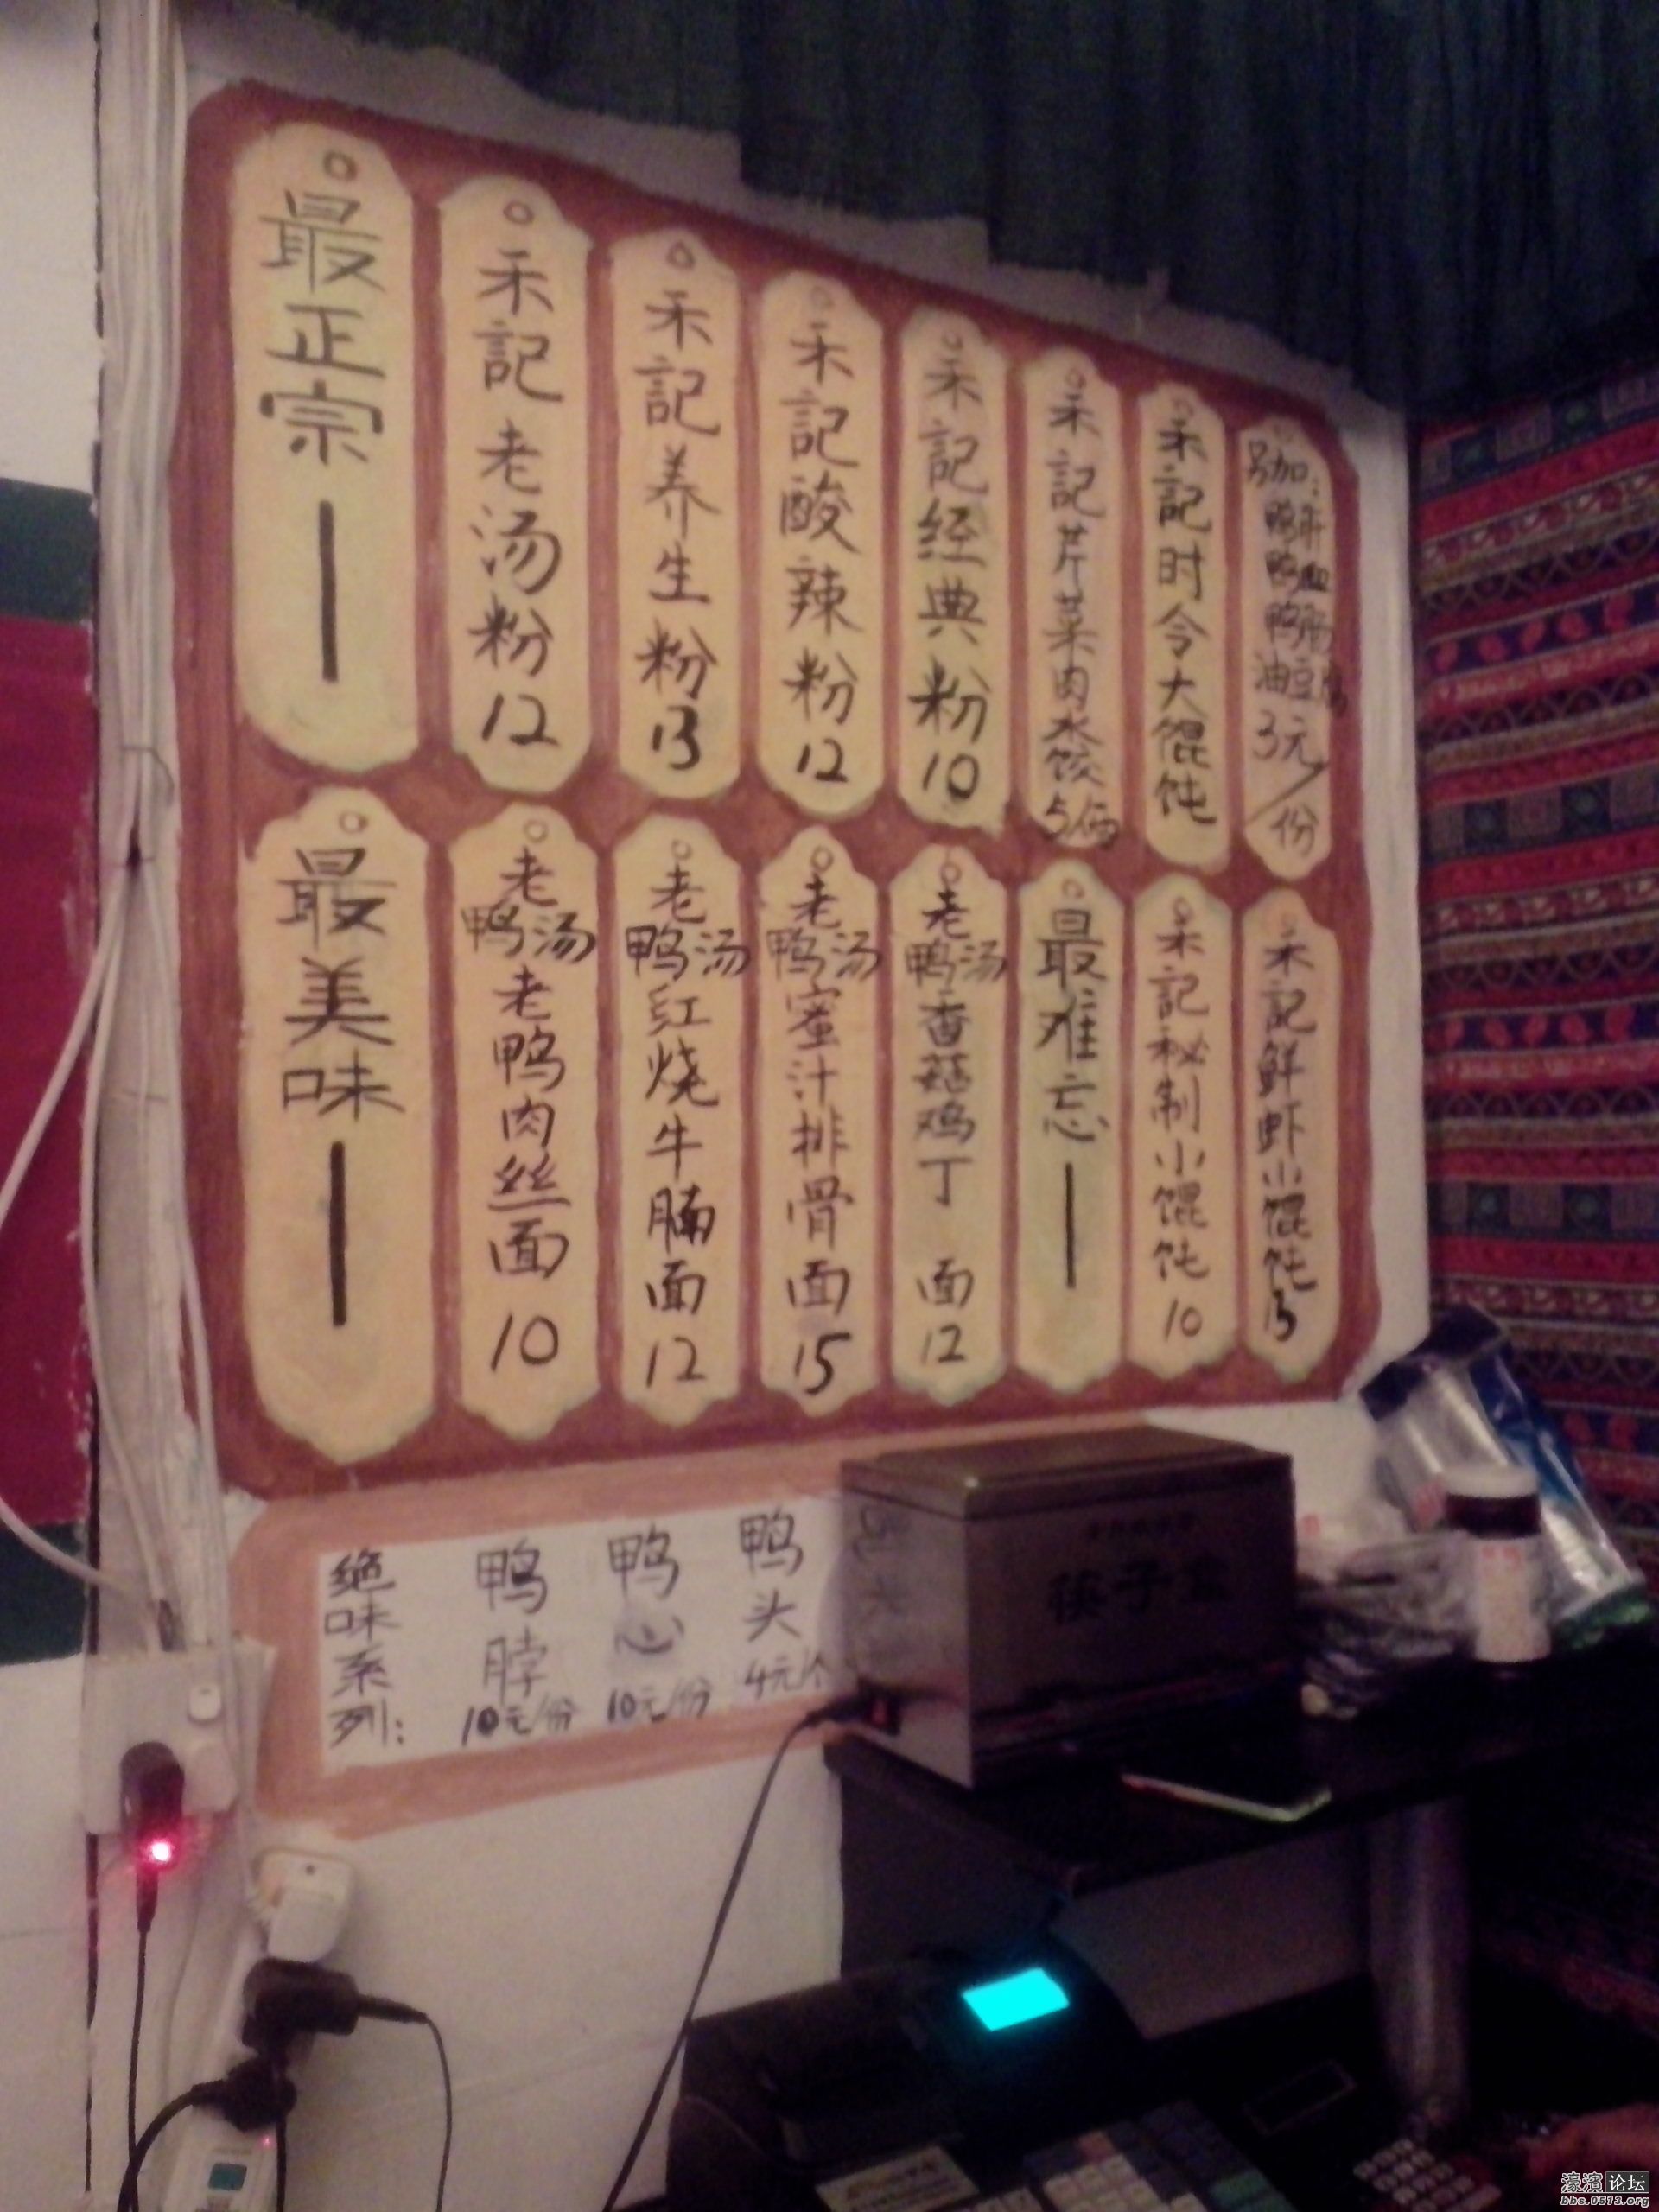 最正宗—
禾記老汤粉12
禾記养生粉13
禾記酸辣粉12
禾記经典粉10
禾記芹菜肉水饺5/两
禾記时令大馄饨
另加:
鸭肝
鸭血
鸭肠
油豆腐
3元/份
最美味—
老鸭汤老鸭肉丝面10
老鸭汤红烧牛腩面12
老鸭汤蜜汁排骨面15
老鸭汤香菇鸡丁 面12
最难忘—
禾記秘制小馄饨10
禾記鲜虾小馄饨13
绝味系列:
鸭脖10元/份
鸭心10元/份
鸭头4元/个
筷子盒
濠滨论坛
bbs.0513.org